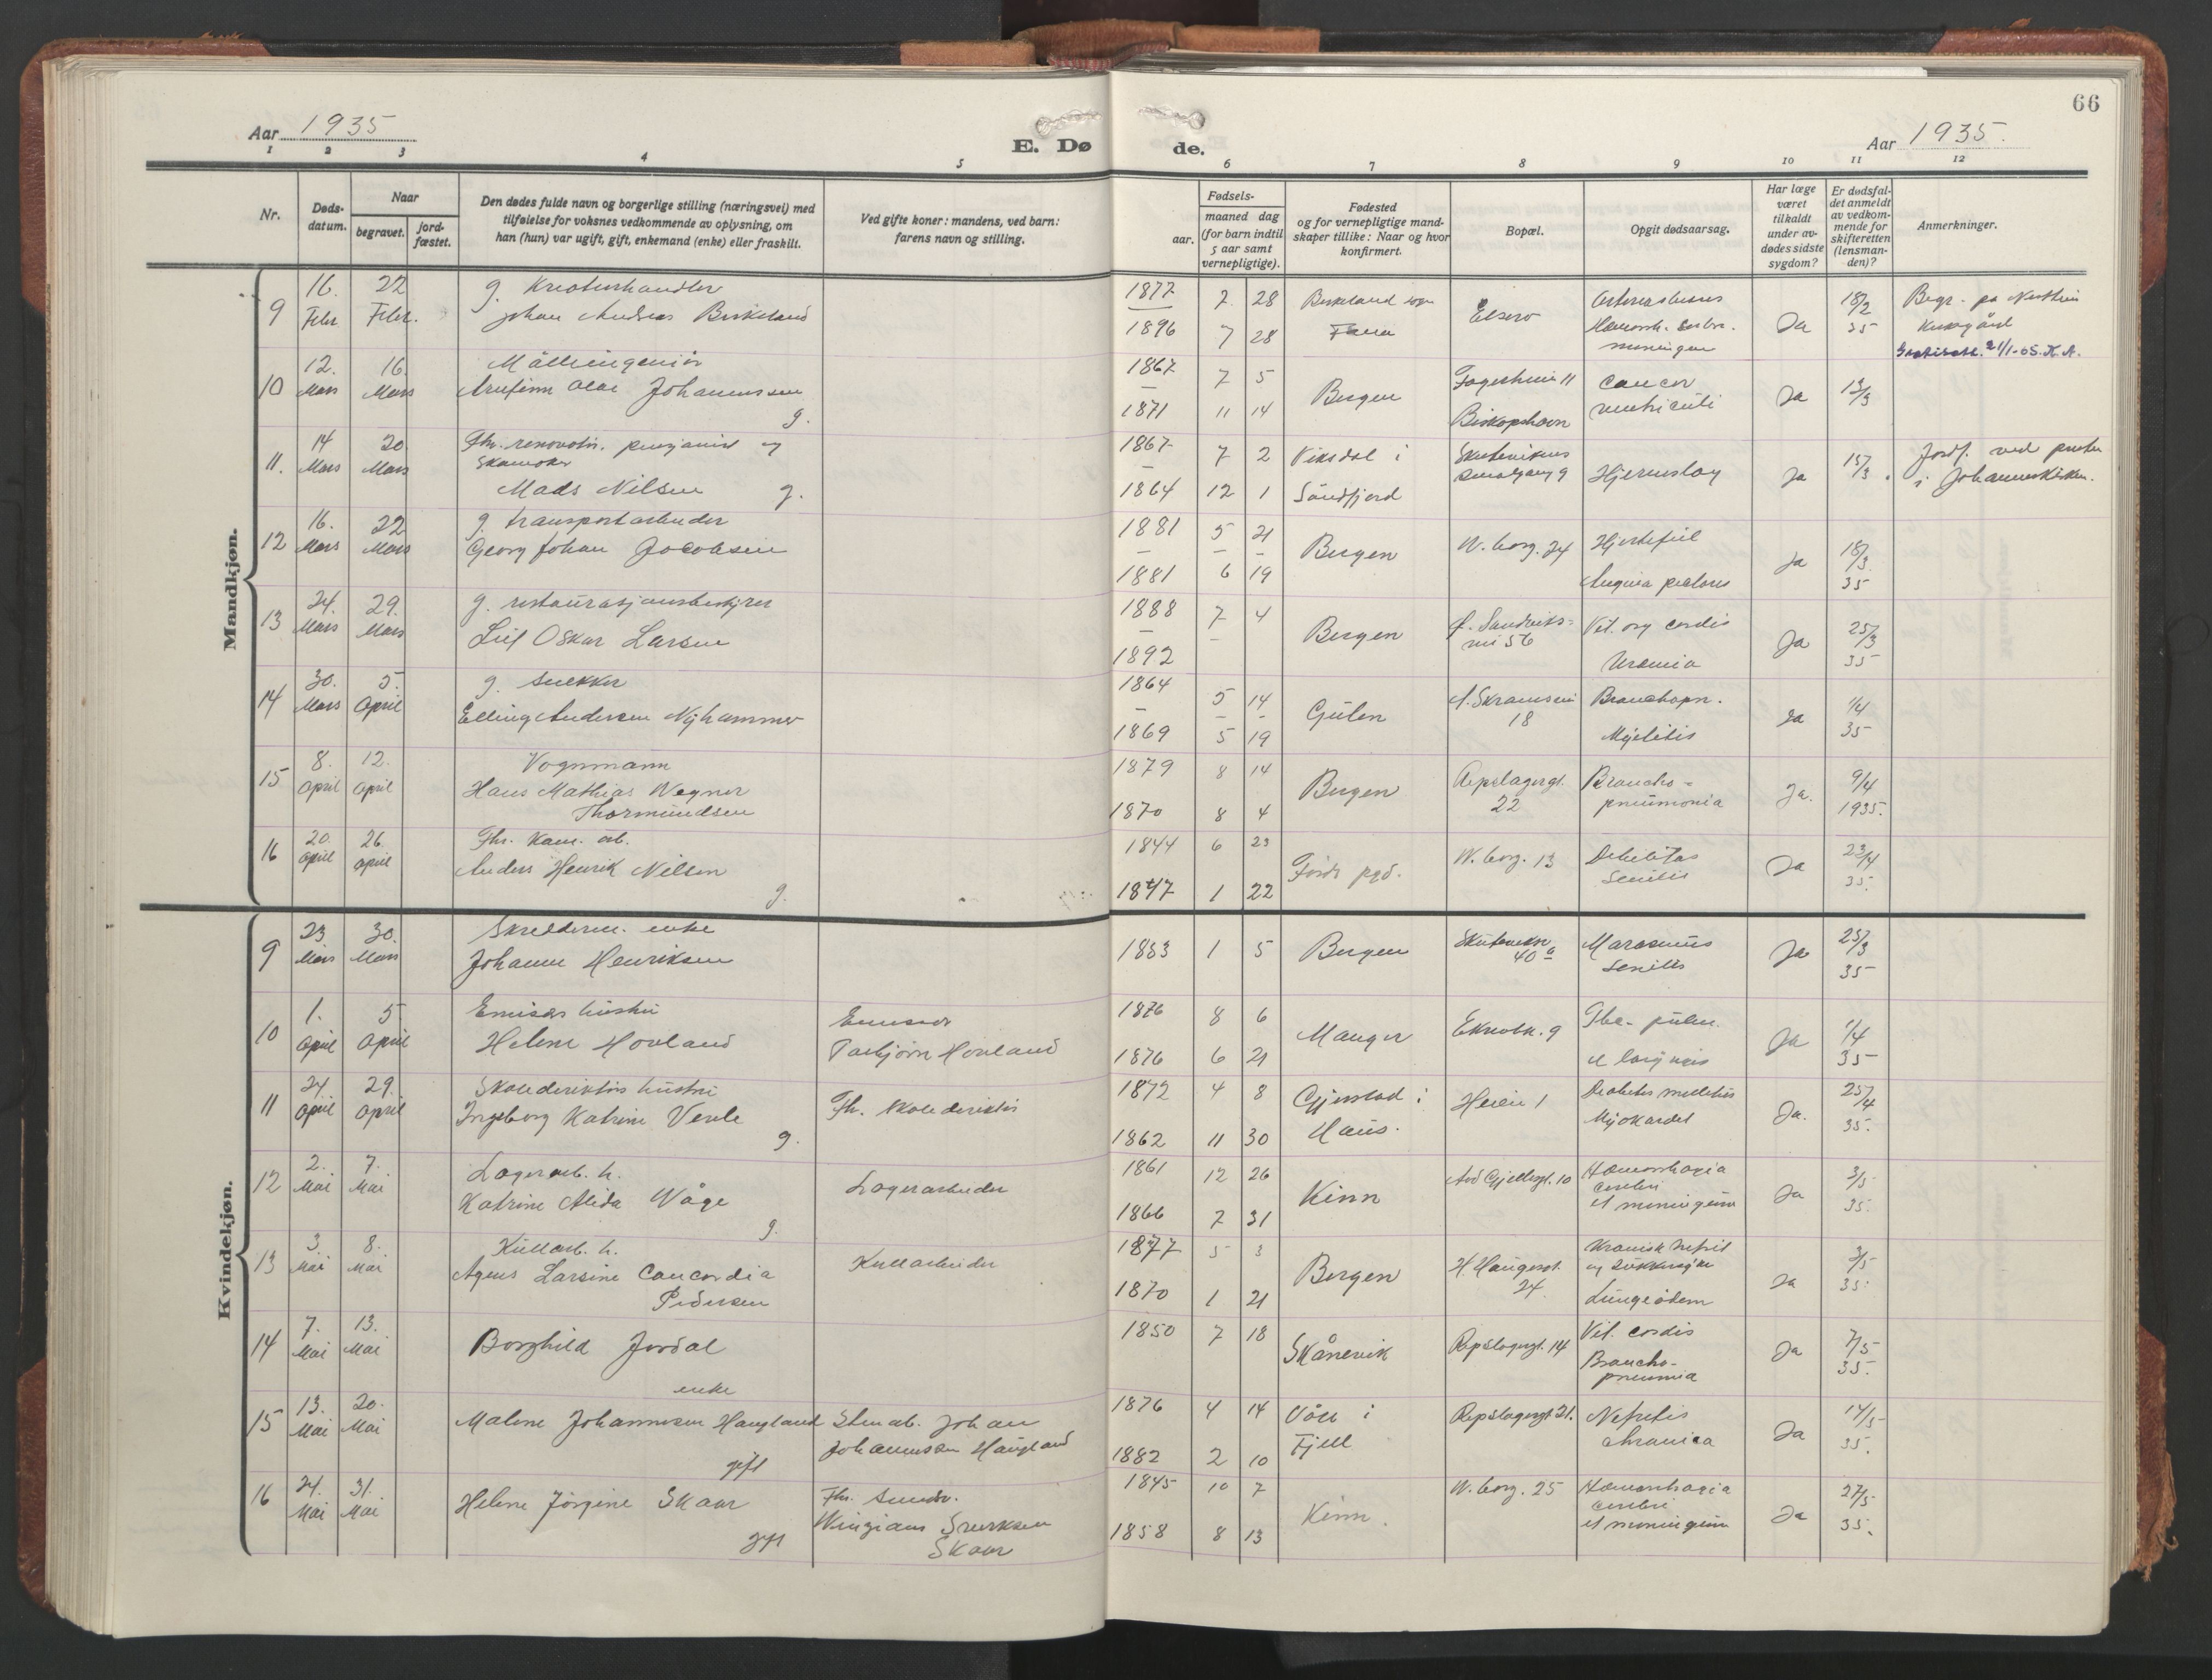 66
Aar 1935
E. Dø
de.
Aar 1935.
1 2 3 4 5 6 7 8 9 10 11 12
Nr.
Døds-
datum.
Naar
begravet.
jord-
fæstet.
Den dødes fulde navn og borgerlige stilling (næringsvei) med
tilføielse for voksnes vedkommende av oplysning, om
han (hun) var ugift, gift, enkemand (enke) eller fraskilt.
Ved gifte koner: mandens, ved barn:
farens navn og stilling.
Fødsels-
aar.
maaned dag
(for barn indtil
5 aar samt
vernepligtige).
Fødested
og for vernepligtige mand-
skaper tillike: Naar og hvor
konfirmert.
Bopæl.
Opgit dødsaarsag.
Har læge
været
tilkaldt
under av-
dødes sidste
sygdom?
Er dødsfal-
det anmeldt
av vedkom-
mende for
skifteretten
(lensman-
den)?
Anmerkninger.
Mandkjøn.
9
16. Febr.
22 Febr.
g. Kreaturhandler
Johan Andreas Birkeland
1877 7 28
1896 7 28
Birkeland sogn
Fana
18/2 35
Ja
Begr. på
10
12. Mars
16. Mars
Målleingeniör
Arnfinn Olai Johannessen
g.
1867 7 5
1871 11 14
Bergen
Fagerheim 11
Biskopshavn
Cancer
ventriculi
Ja
13/3
11.
14 Mars
20. Mars
Fhv. renovatn. pensjonist og
Mads Nilsen g.
1867 7 2
1864 12 1
Viksdal i
Söndfjord
Hjerneslag
Ja
15/3
Jordf. ved
i Johanneskirken.
12
16. Mars
22 Mars
g. transportarbeider
Georg Johan Jacobsen
1881 5 21
1881 6 19
Bergen
W. borg. 24
Hjertefeil
Angina pectoris
Ja
18/3 35
13
24. Mars
29. Mars
g. restaurasjonsbestyrer
Leif Oskar Larsen
1888 7 4
1892
Bergen
Vit. org cordis
Uremia
Ja
25/3 35
14
30. Mars
5. April
g. snekker
Elling Andersen Nyhammer
1864 5 14
1869 5 19
Gulen
18
Bronchopn.
Myelitis
Ja
1/4 35
15
8. April
12. April
Vognmann
Hans Mathias Wegner
Thormundsen
1879 8 14
1870 8 4
Bergen
Repslagergt.
22
Broncho-
pneumonia
Ja.
9/4 1935.
16
20. April
26 April
Fhv. kom. arb.
Anders Henrik Nilsen
g.
1844 6 23
1847 1 22
Förde pgd.
W. borg. 13
Debilitas
Senilis
Ja
23/4 35.
Kvindekjøn.
9
23 Mars
30. Mars
enke
Johanne Henriksen
1853 1 5
Bergen
40a
Marasmus
Senilis
Ja
25/3 35
10
1. April
5 April
Emissærs hustru
Helene Hovland
Emissær
Torbjörn Hovland
1876 8 6
1876 6 21
Manger
Ekrebk. 9
Tbc. pulm.
et laryngis
Ja
1/4 35
11
24 April
29. April
Skoledirektörs hustru
Ingeborg Katrine Verle
g.
Fh. skoledirektör
1872 4 8
1862 11 30
Gjerstad i
Haus.
Heien 1
Diabetes mellitus
Myokardit
Ja.
25/4 35.
12
2. Mai
7. Mai
Lagerarb. h.
Katrine Alida Våge
g.
Lagerarbeider
1861 12 26
1866 7 31
Kinn
Ard Gjellesgt. 10
Hæmorrhagia
cerebri
et meningeum
Ja
3/5 35.
13
3. Mai
8. Mai
Kullarb. h.
Agnes Larsine Concordia
Pedersen
Kullarbeider
1877 5 3
1870 1 21
Bergen
H. Haugesgt.
24.
Kronisk nefrit
og sukkersyke
Lungeödem
Ja
3/5 35.
14
7. Mai
13. Mai
Borghild Jordal
enke
1850 7 18
Skånevik
Repslagergt. 14
Vit. cordis
Broncho-
pneumia
Ja
7/5 35.
15
13. Mai
20. Mai
Malene Johannesen Haugland
gift
Stenarb. Johan
Johannessen Haugland
1876 4 14
1882 2 10
i
Fjell
Repslagergt 21.
Nefritis
chronica
Ja
14/5 35.
16
24. Mai
31. Mai
Helene Jörgine Skaar
gift
Fhv.
Skaar
1845 10 7
1858 8 13
Kinn.
W. borg. 25
Hæmorrhagia
cerebri
et meningeum
Ja
27/5 35.